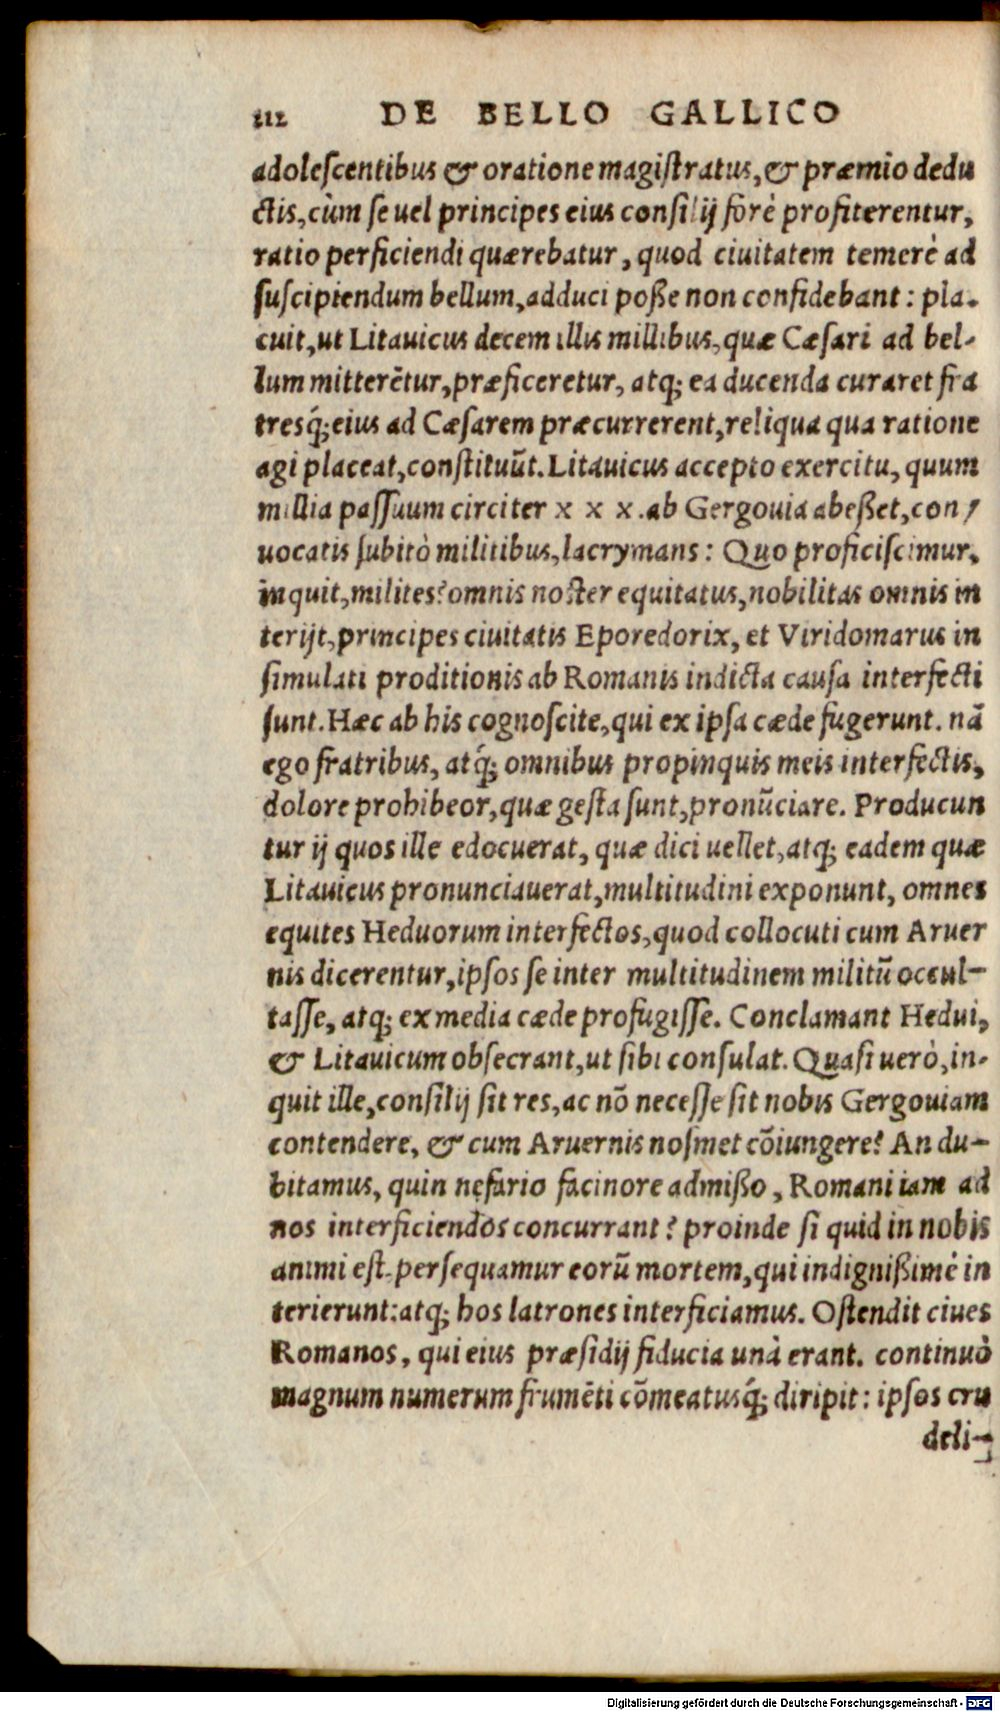 112 DE BELLO GALLICO
adolescentibus & oratione magistratus, & præmio dedu
ctis, cùm se uel principes eius consilij forè profiterentur,
ratio perficiendi quærebatur, quod ciuitatem temerè ad
suscipiendum bellum, adduci poße non confidebant: pla-
cuit, ut Litauicus decem illis millibus, quæ Cæsari ad bel-
lum mitterētur, præficeretur, atq; ea ducenda curaret fra
tresq́; eius ad Cæsarem præcurrerent, reliqua qua ratione
agi placeat, constituūt. Litauicus accepto exercitu, quum
millia passuum circiter x x x. ab Gergouia abeßet, con-
uocatis subitò militibus, lacrymans: Quo proficiscimur,
inquit, milites? omnis noster equitatus, nobilitas omnis in
terijt, principes ciuitatis Eporedorix, et Viridomarus in
simulati proditionis ab Romanis indicta causa interfecti
sunt. Hæc ab his cognoscite, qui ex ipsa cæde fugerunt. nā
ego fratribus, atq́; omnibus propinquis meis interfectis,
dolore prohibeor, quæ gesta sunt, pronūciare. Producun
tur ij quos ille edocuerat, quæ dici uellet, atq; eadem quæ
Litauicus pronunciauerat, multitudini exponunt, omnes
equites Heduorum interfectos, quod collocuti cum Aruer
nis dicerentur, ipsos se inter multitudinem militū occul-
tasse, atq; ex media cæde profugisse. Conclamant Hedui,
& Litauicum obsecrant, ut sibi consulat. Quasi uerò, in-
quit ille, consilij sit res, ac nō necesse sit nobis Gergouiam
contendere, & cum Aruernis nosmet cōiungere? An du-
bitamus, quin nęfario facinore admißo, Romani iam ad
nos interficiendos concurrant? proinde si quid in nobis
animi est, persequamur eorū mortem, qui indignißimè in
terierunt: atq; hos latrones interficiamus. Ostendit ciues
Romanos, qui eius præsidij fiducia unà erant. continuò
magnum numerum frumēti cōmeatusq́; diripit: ipsos cru
deli-
Digitalisierung gefördert durch die Deutsche Forschungsgemeinschaft - DFG